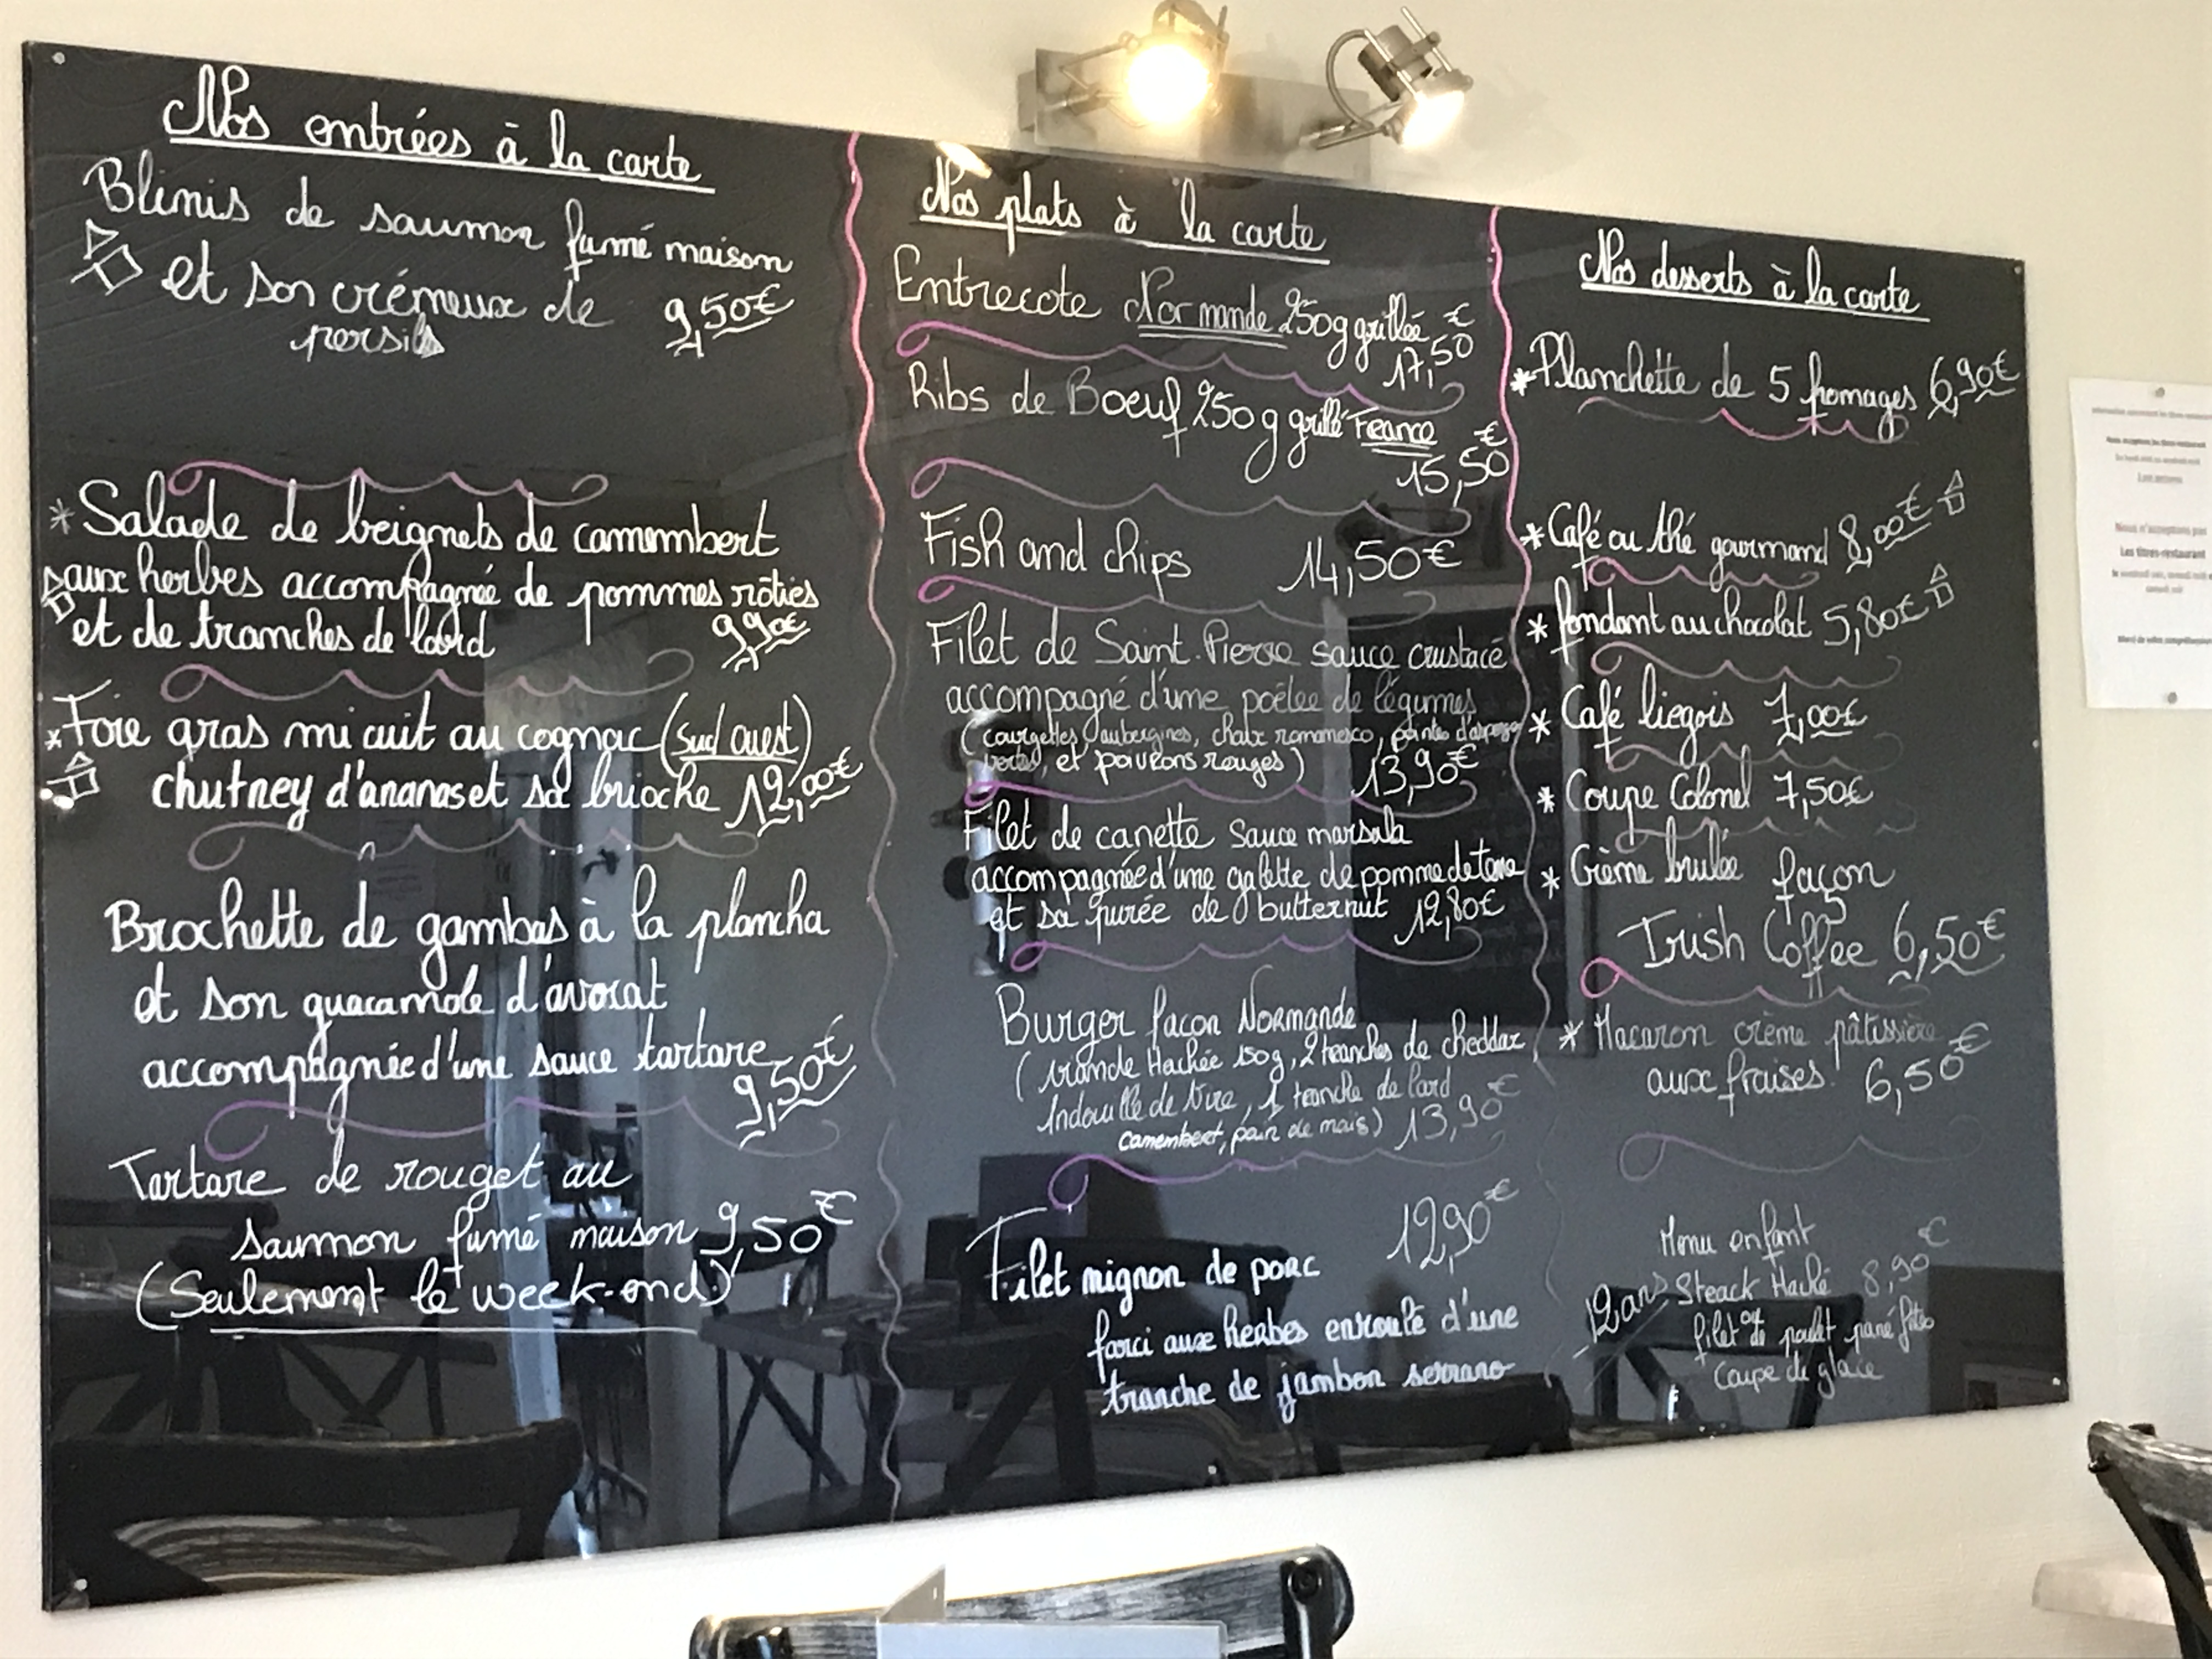 Nos entrées à la carte
Blinis de saumon fumé maison
et son crémeux de
persils 9,50€
* Salade de beignets de camembert
aux herbes accompagnée de pommes rôties
et de tranches de lard 9,90€
* Foie gras mi cuit au cognac (sud ouest)
chutney d'ananas et sa brioche 12,00€
Brochette de gambas à la plancha
et son guacamole d'avocat
accompagnée d'une sauce tartare
9,50€
Tartare de rouget au
saumon fumé maison 9,50€
(Seulement le week-end)
Nos plats à la carte
Entrecote Normande 250g grillée
17,50€
Ribs de Boeuf 250g grillé France
15,50€
Fish and chips 14,50€
Filet de Saint-Pierre sauce crustacé
accompagné d'une poêlée de légumes
(courgettes aubergines, choux romanesco, pointes d'asperges
vertes, et poivrons rouges) 13,90€
Filet de canette sauce marsala
accompagnée d'une galette de pomme de terre
et sa purée de butternut 12,80€
Burger façon Normande
(viande Hachée 150g, 2 tranches de cheddar
Andouille de Vire, 1 tranche de lard
camembert, pain de maïs) 13,90€
12,90€
Filet mignon de porc
farci aux herbes enroulé d'une
tranche de jambon serrano
Nos desserts à la carte
* Planchette de 5 fromages 6,90€
* Café ou thé gourmand 8,00€
* fondant au chocolat 5,80€
* Café liegois 7,00€
* Coupe Colonel 7,50€
* Crème brulée façon
Irish Coffee 6,50€
* Macaron crème pâtissière
aux fraises 6,50€
Menu enfant
12 ans Steack Haché 8,90€
ou
filet de poulet pané frites
Coupe de glace
Nous n'acceptons pas
Les titres-restaurant